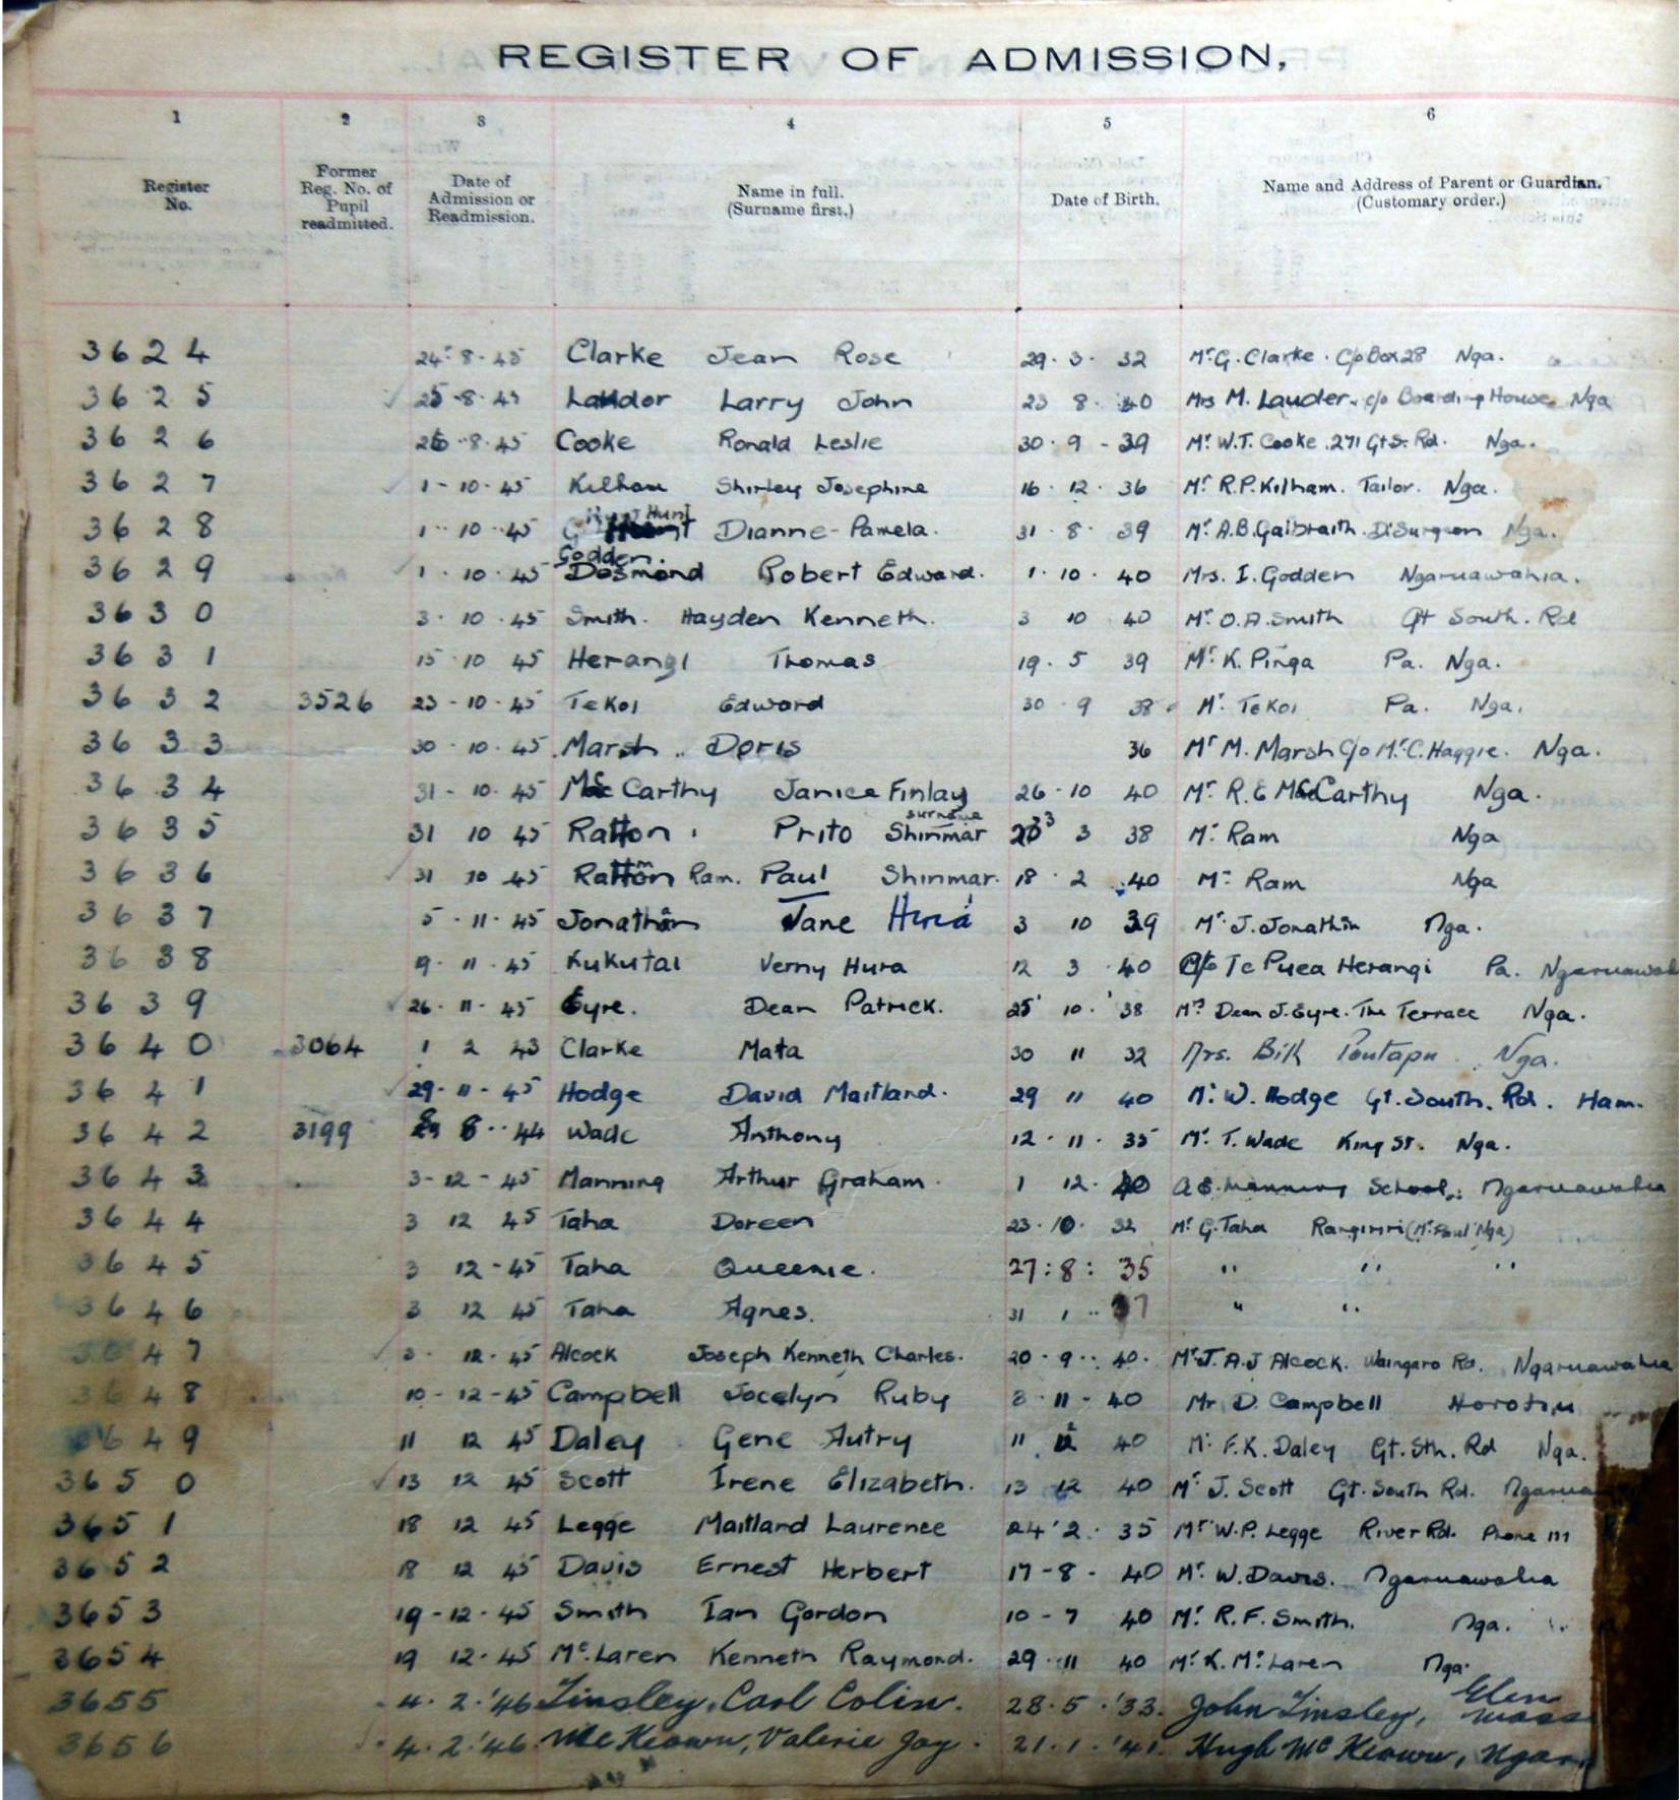 REGISTER OF ADMISSION,
1 2 3 4 5 6
Register No. Former Reg. No. of Pupil readmitted. Date of Admission or Readmission. Name in full. (Surname first.) Date of Birth. Name and Address of Parent or Guardian. (Customary order.)
3624 24-8-45 Clarke Jean Rose 29-3-32 Mr G. Clarke. C/o Box 28 Nga.
3625 25-8-45 Larry John 23 8 40 Mrs M. Lauder. c/o Boarding House Nga
3626 26-8-45 Cooke Ronald Leslie 30-9-39 Mr W.T. Cooke. 271 Gt S. Rd. Nga.
3627 1-10-45 Kilham Shirley Josephine 16-12-36 Mr R.P. Kilham. Tailor. Nga.
3628 1-10-45 Hunt Dianne-Pamela. 31-8-39 Mr A.B. Galbraith. D'Surgeon Nga.
3629 1-10-45 Godden. Desmond Robert Edward. 1-10-40 Mrs. I. Godden Ngaruawahia.
3630 3-10-45 Smith. Hayden Kenneth. 3 10 40 Mr O.A. Smith Gt South. Rd
3631 15 10 45 Herangi Thomas 19-5 39 Mr K. Pinga Pa. Nga.
3632 3526 23-10-45 TeKoi Edward 30 9 38 Mr TeKoi Pa. Nga.
3633 30-10-45 Marsh.. Doris 36 Mr M. Marsh C/o Mr C. Haggie. Nga.
3634 31-10-45 McCarthy Janice Finlay 26-10 40 Mr R.E McCarthy Nga.
3635 31 10 45 Ratton. Prito Shinmar surname 3 38 Mr Ram Nga
3636 31 10 45 Ram. Paul Shinmar. 18-2 40 Mr Ram Nga
3637 5-11-45 Jonathan Jane 3 10 39 Mr J. Jonathan Nga.
3638 9-11-45 Kukutai Verny Hura 12 3 40 C/o Te Puea Herangi Pa.
3639 26-11-45 Eyre. Dean Patrick. 25 10 38 Mrs Dean J. Eyre. The Terrace Nga.
3640 3064 1 2 43 Clarke Mata 30 11 32 Mrs. Nga.
3641 29-11-45 Hodge David Maitland. 29 11 40 Mr W. Hodge Gt. South. Rd. Ham.
3642 3199 8-44 Wade Anthony 12-11-35 Mr T. Wade King St. Nga.
3643 3-12-45 Manning Arthur Graham 1 12 40 A E. Manning School. Ngaruawahia
3644 3 12 45 Taha Doreen 23-10-32 Mr G. Taha Rangiriri (Mr Paul Nga)
3645 3 12-45 Taha Queenie. 27:8:35 " " "
3646 3 12 45 Taha Agnes. 31 1 37 " "
3647 3-12-45 Alcock Joseph Kenneth Charles. 20-9-40. Mr J.A.J Alcock. Waingaro Rd. Ngaruawahia
3648 10-12-45 Campbell Jocelyn Ruby 8-11-40 Mr D. Campbell Horotiu
3649 11 12 45 Daley Gene Autry 11 12 40 Mr F.K. Daley Gt. Sth. Rd Nga.
3650 13 12 45 Scott Irene Elizabeth. 13 12 40 Mr J. Scott Gt. South Rd.
3651 18 12 45 Legge Maitland Laurence 24 2 35 Mr W.P. Legge River Rd. Phone 111
3652 18 12 45 Davis Ernest Herbert 17-8-40 Mr W. Davis. Ngaruawahia
3653 19-12-45 Smith Ian Gordon 10-7 40 Mr R.F. Smith. Nga.
3654 19 12-45 McLaren Kenneth Raymond. 29-11 40 Mr K. McLaren Nga.
3655 4.2.'46 Tinsley, Carl Colin. 28.5.'33. John Tinsley, Glen
3656 4.2.'46. McKeown, Valerie Joy. 21.1.'41. Hugh McKeown,